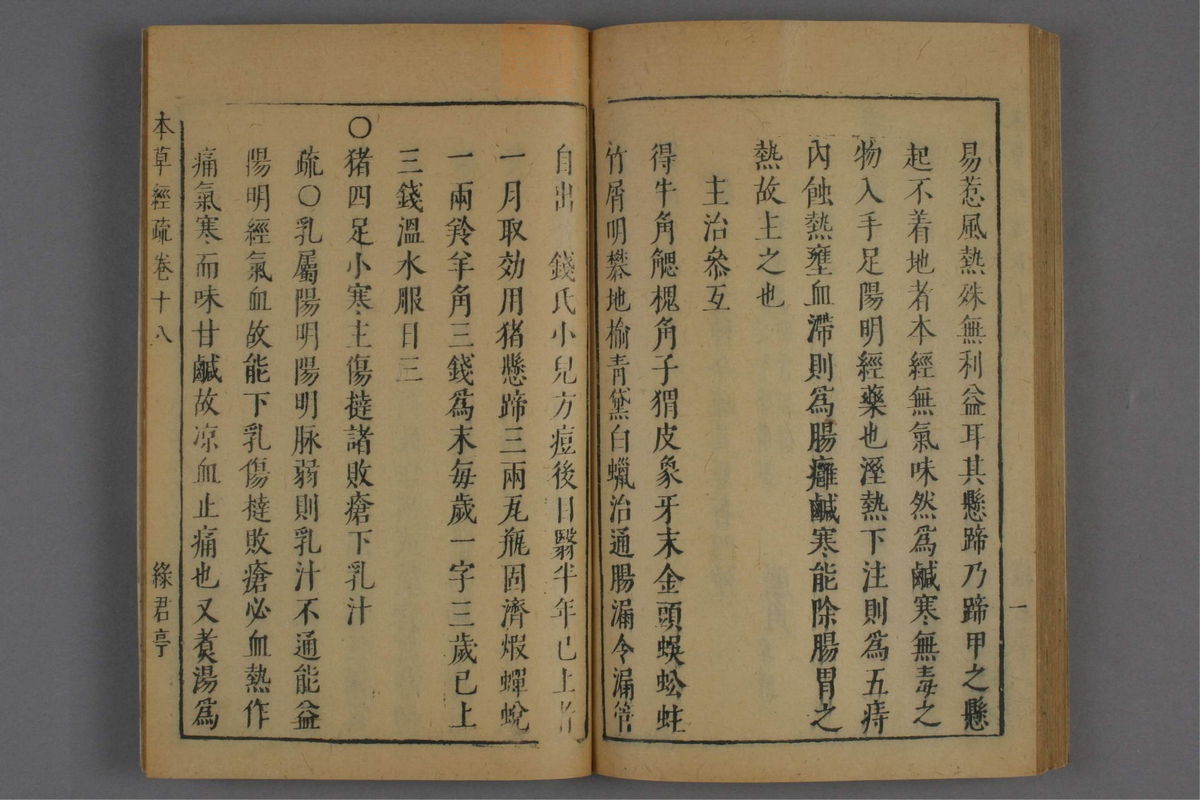 易惹風熱殊無利益耳其懸蹄乃蹄甲之懸
起不着地者本經無氣味然爲鹹寒無毒之
物入手足陽明經藥也溼熱下注則爲五痔
內蝕熱壅血滯則爲腸癰鹹寒能除腸胃之
熱故主之也
主治叅互
得牛角䚡槐角子猬皮象牙末金頭蜈蚣蛀
竹屑明礬地榆青黛白蠟治通腸漏令漏管
自出 錢氏小兒方痘後目翳半年已上者
一月取効用猪懸蹄三兩瓦瓶固濟煆蟬蛻
一兩羚羊角三錢爲末每歲一字三歲已上
三錢溫水服日三
〇猪四足小寒主傷撻諸敗瘡下乳汁
疏〇乳屬陽明陽明脉弱則乳汁不通能益
陽明經氣血故能下乳傷撻敗瘡必血熱作
痛氣寒而味甘鹹故凉血止痛也又煑湯爲
本草經疏卷十八
綠君亭